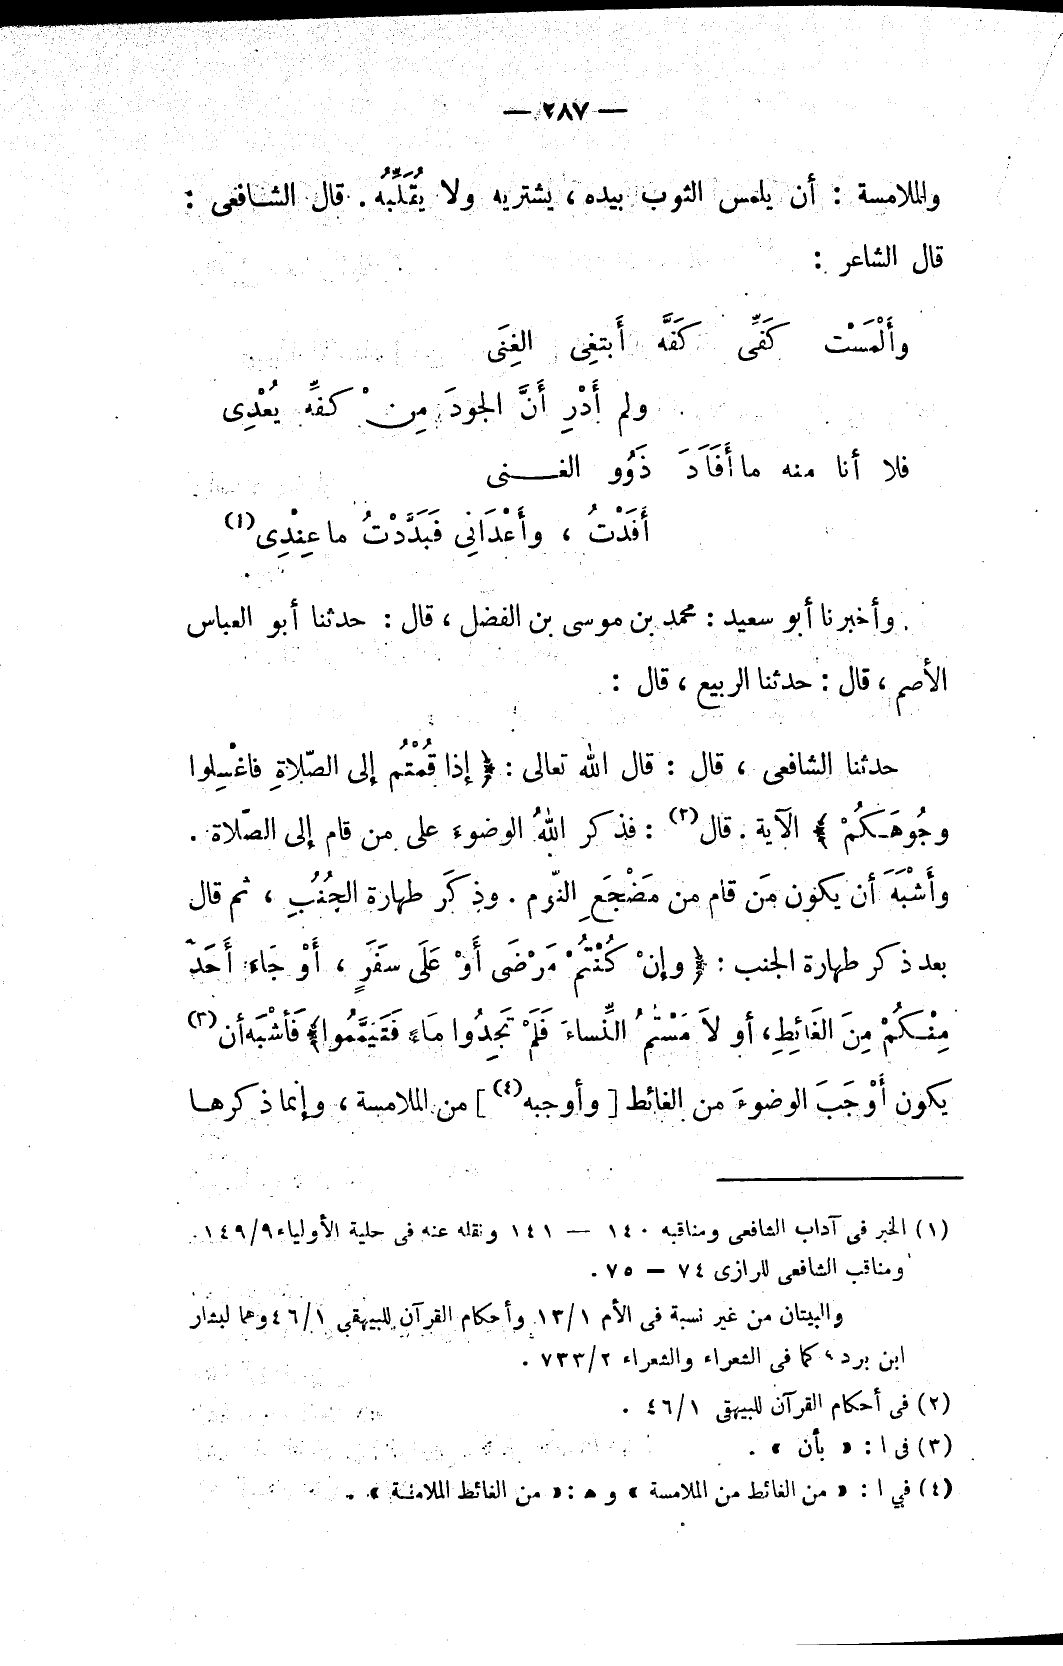 — ٢٨٧ —
والملامسة : أن يلمس الثوب بيده ، يشتريه ولا يُقَلِّبُه . قال الشافعى :
قال الشاعر :
وأَلْمَسْت كَفِّى كَفَّه أَبتغِى الغِنَى
ولم أَدْرِ أَنَّ الجودَ مِن ْ كفِّه يُعْدِى
فلا أنا منه ما أَفَادَ ذَوُو الغنى
أَفَدْتُ ، وأَعْدَانِى فَبَدَّدْتُ ما عِنْدِى(١)
وأخبرنا أبو سعيد : محمد بن موسى بن الفضل ، قال : حدثنا أبو العباس
الأصم ، قال : حدثنا الربيع ، قال :
حدثنا الشافعى ، قال : قال الله تعالى : ﴿ إذا قُمْتُم إلى الصّلاةِ فاغْسِلوا
وجُوهَكُمْ ﴾ الآية . قال(٢) : فذكر اللهُ الوضوءَ على من قام إلى الصّلاة .
وأَشْبَهَ أن يكون مَن قام من مَضْجَعِ النّوم . وذِكَر طهارة الجُنُبِ ، ثم قال
بعد ذكر طهارة الجنب : ﴿ وإن ْ كُنْتُم ْ مَرْضَى أَو ْ عَلَى سَفَرٍ ، أَوْ جَاءَ أَحَدٌ
مِنْكُمْ مِنَ الغَائِطِ، أو لاَ مَسْتمُ النِّساءَ فَلَمْ تَجِدُوا مَاءً فَتَيَمَّمُوا﴾ فَأشْبَه أن(٣)
يكون أَوْجَبَ الوضوءَ من الغائط [ وأوجبه(٤) ] من الملامسة ، وإنما ذكرها
(١) الخبر فى آداب الشافعى ومناقبه ١٤٠ — ١٤١ ونقله عنه فى حلية الأولياء ١٤٩/٩.
ومناقب الشافعى للرازى ٧٤ — ٧٥ .
والبيتان من غير نسبة فى الأم ١٣/١ وأحكام القرآن للبيهقى ٤٦/١ وهما لبشار
ابن برد ، كما فى الشعراء والشعراء ٧٣٣/٢ .
(٢) فى أحكام القرآن للبيهقى ٤٦/١ .
(٣) فى ا : « بأن » .
(٤) في ا : « من الغائط من الملامسة » و ه : « من الغائط الملامسة » .